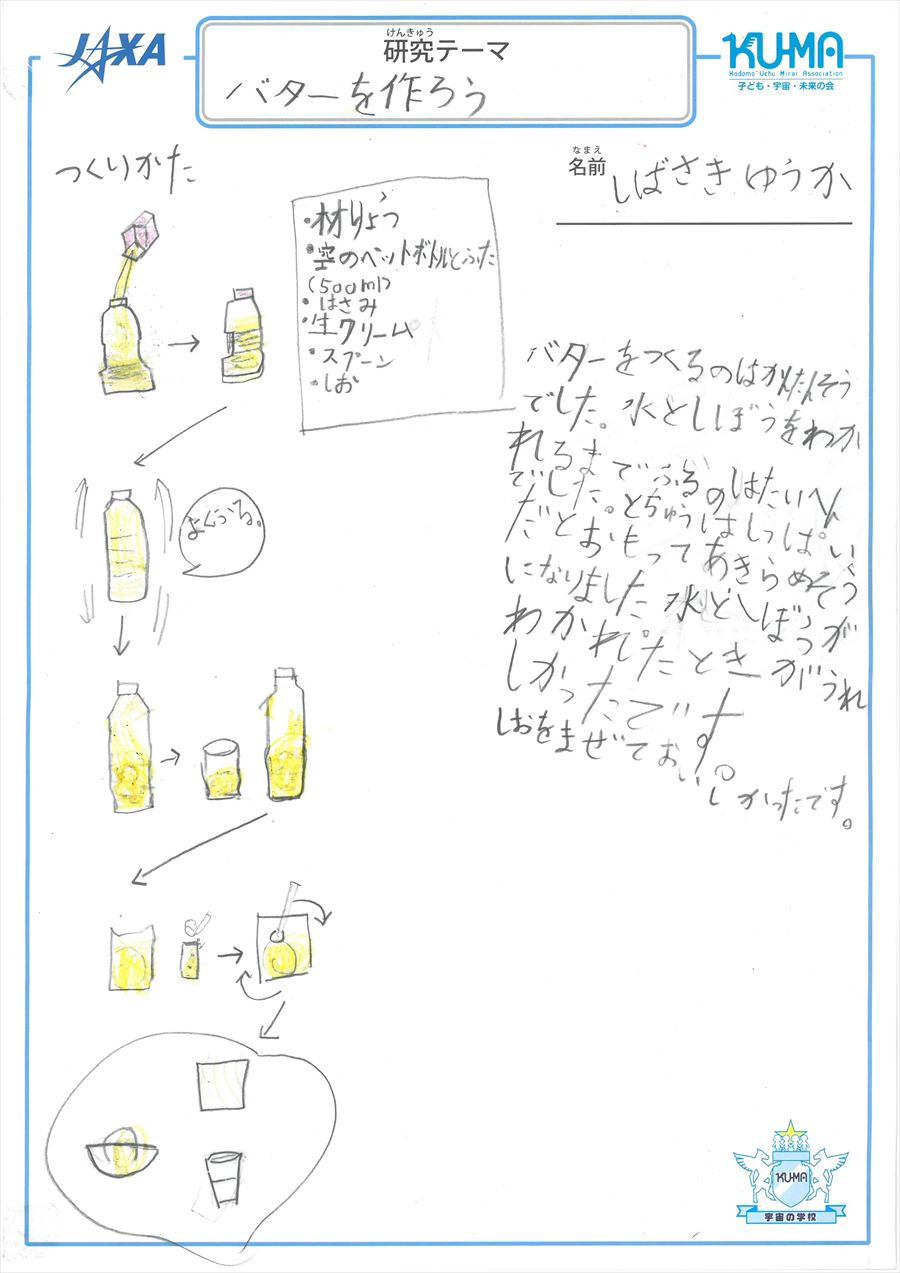 JAXA
けんきゅう
研究テーマ
バターを作ろう
KU-MA
Kodomo Uchu Mirai Association
子ども・宇宙・未来の会
なまえ
名前
しばさきゆうか
つくりかた
・材りょう
・空のペットボトルとふた
(500ml)
・はさみ
・生クリーム
・スプーン
・しお
よくふる。
バターをつくるのはかんたんそう
でした。水としぼうをわか
れるまでふるのはたいへん
でした。とちゅうはしっぱい
だとおもってあきらめそう
になりました水としぼうが
わかれたときがうれ
しかったです。
しおをまぜておいしかったです。
KU-MA
宇宙の学校